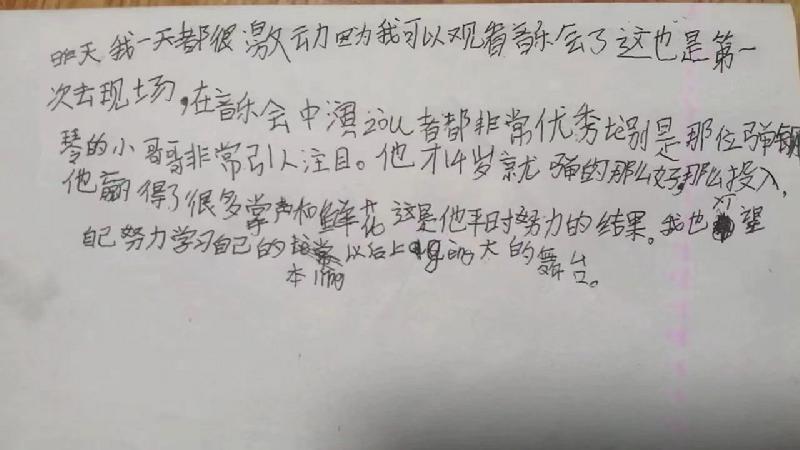 昨天我一天都很激动因为我可以观看音乐会了这也是第一
次去现场,在音乐会中演zou者都非常优秀特别是那位弹钢
琴的小哥哥非常引人注目。他才14岁就弹的那么好,那么投入,
他赢得了很多掌声和鲜花这是他平时努力的结果。我也希望
自己努力学习自己的以后上geng大的舞台。
本ling